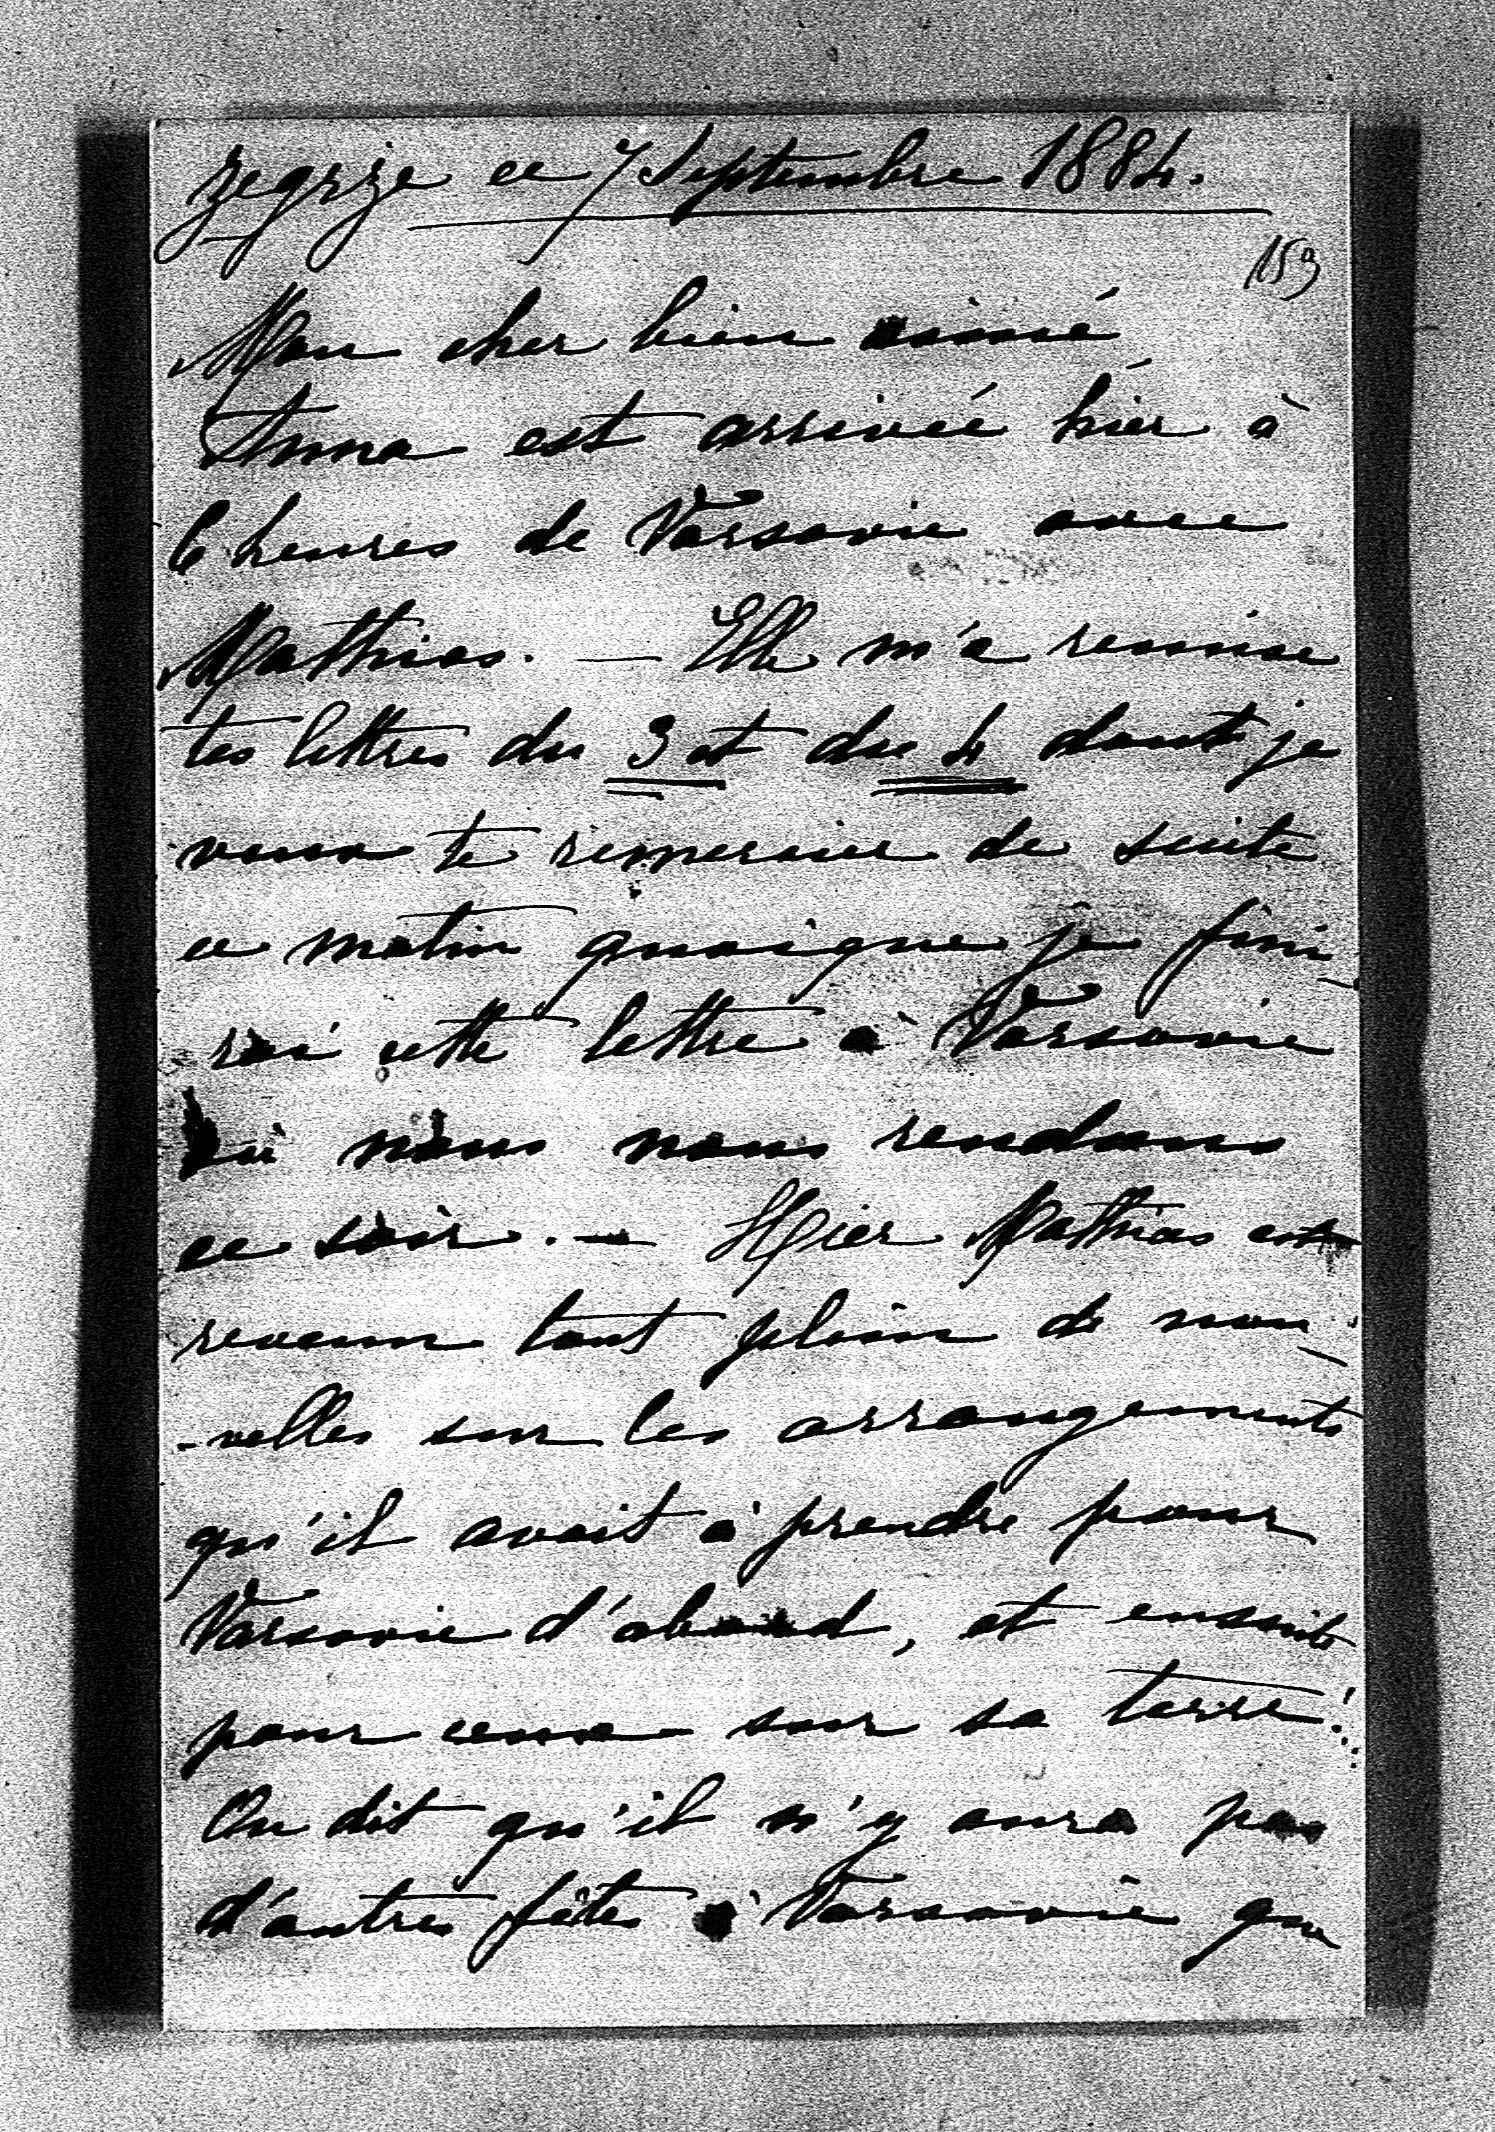 Zegrze ce 7 Septembre 1884.
159
Mon cher bien aimé
Anna est arrivée hier à
6 heures de Varsovie avec
Mathias. — Elle m'a remise
tes lettres du 3 et du 4 dont je
te remercie de suite
ce matin quoique je fini-
rai cette lettre à Varsovie
où nous nous rendons
ce soir. — Hier Mathias est
revenu tout plein de nou-
-velles sur les arrangements
qu'il avait à prendre pour
Varsovie d'abord, et ensuite
pour ceux sur sa terre!..
On dit qu'il n'y aura pas
d'autres fêtes à Varsovie que